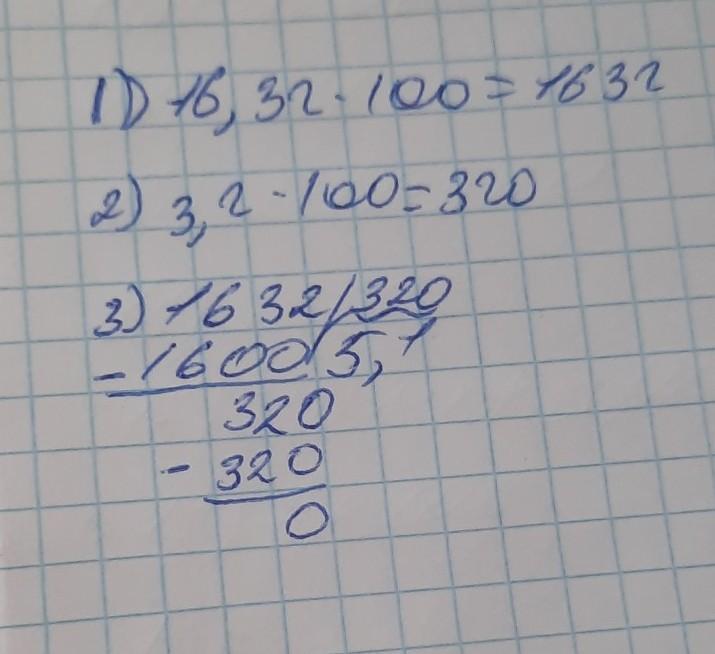 1) 16,32 · 100 = 1632
2) 3,2 · 100 = 320
3) 1632 | 320
- 1600 | 5,1
320
- 320
0